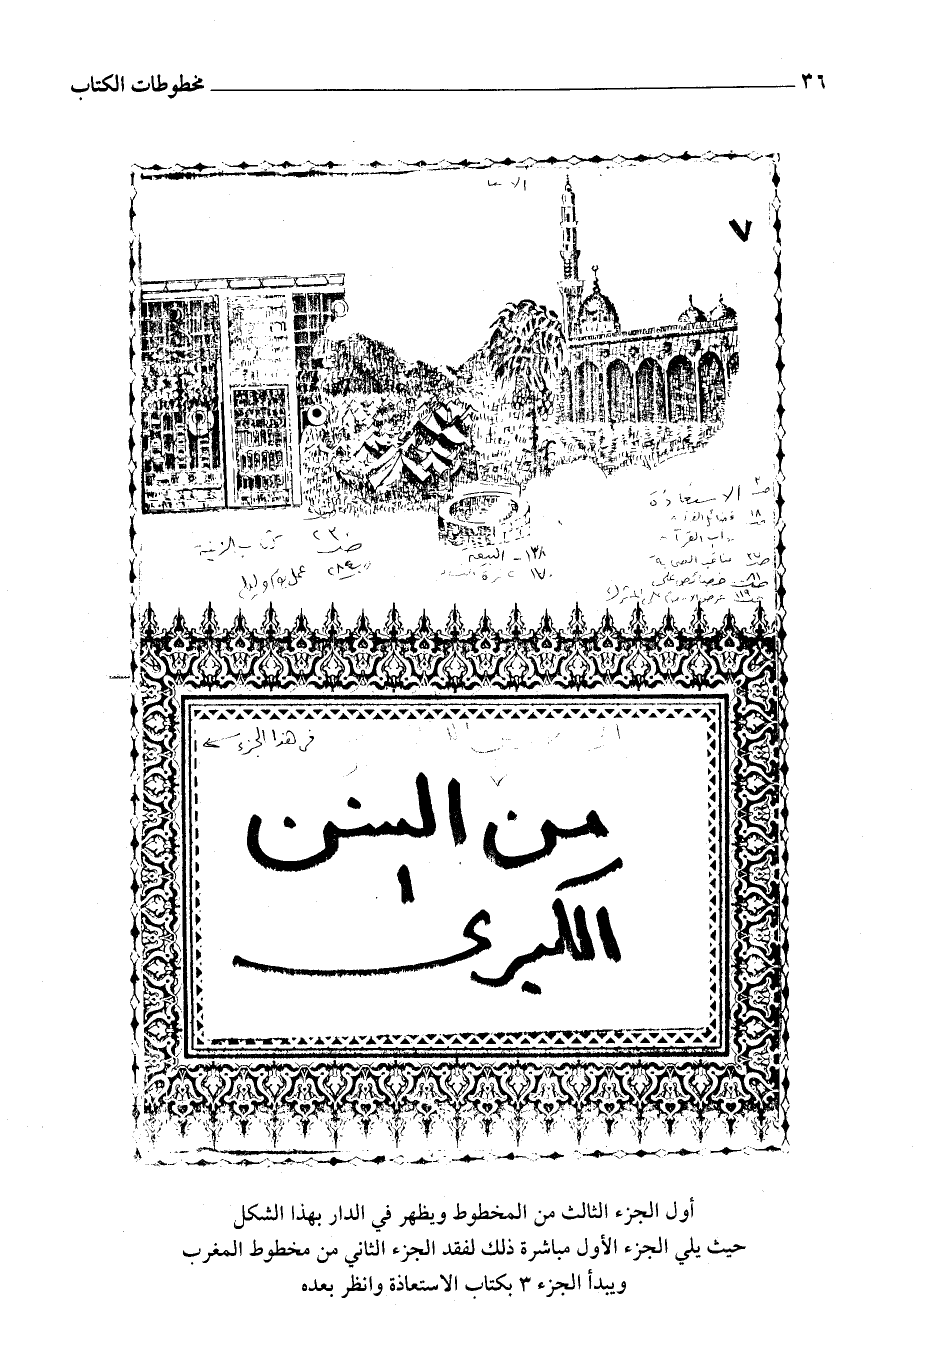 ٣٦ مخطوطات الكتاب
٧
الاستعاذة
١٨ فضائل القرآن
٢٣٠ كتاب الزينة
١٣٨ - البيعة
عمل يوم وليلة
في هذا الجزء
من السنن
الكبرى
أول الجزء الثالث من المخطوط ويظهر في الدار بهذا الشكل
حيث يلي الجزء الأول مباشرة ذلك لفقد الجزء الثاني من مخطوط المغرب
ويبدأ الجزء ٣ بكتاب الاستعاذة وانظر بعده